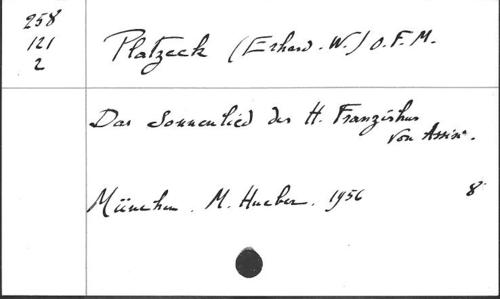 258
121
2
Platzeck (Erhard-W.) O.F.M.
Das Sonnenlied des H. Franziskus
von Assisi.
München. M. Hueber. 1956 8°